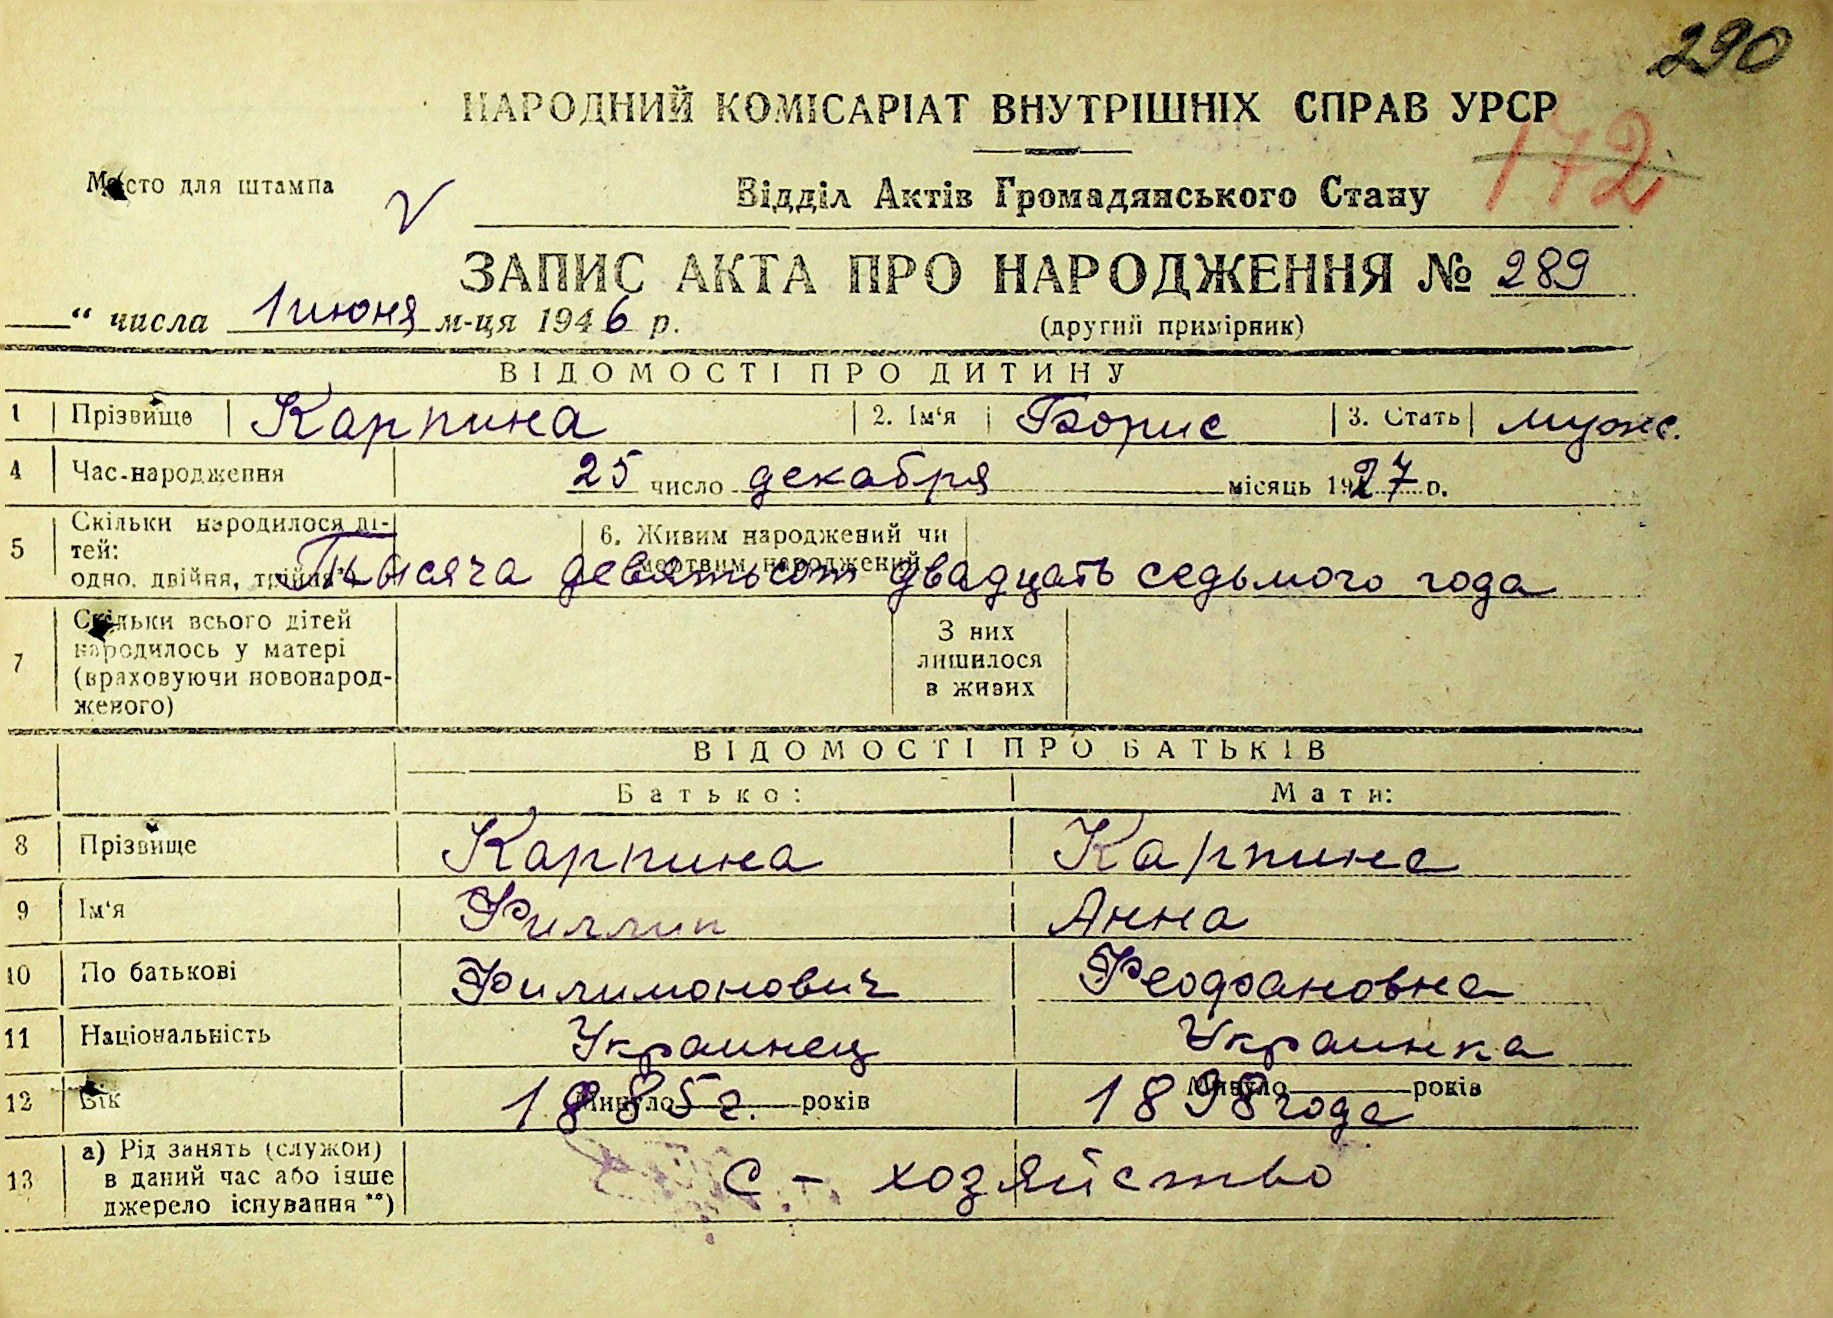 290
НАРОДНИЙ КОМІСАРІАТ ВНУТРІШНІХ СПРАВ УРСР
172
Місто для штампа
V
Відділ Актів Громадянського Стану
ЗАПИС АКТА ПРО НАРОДЖЕННЯ № 289
“ числа 1 июня м-ця 1946 р.
(другий примірник)
ВІДОМОСТІ ПРО ДИТИНУ
1 Прізвище Карпина 2. Ім‘я Борис 3. Стать мужс.
4 Час народження 25 число декабря місяць 1927 р.
5 Скільки народилося ді-
тей:
одно, двійня, трійня*)
6. Живим народжений чи
мертвим народжений
Тысяча девятьсот двадцать седьмого года
7 Скільки всього дітей
народилось у матері
(враховуючи новонарод-
женого)
З них
лишилося
в живих
ВІДОМОСТІ ПРО БАТЬКІВ
Батько: Мати:
8 Прізвище Карпина Карпина
9 Ім‘я Филлип Анна
10 По батькові Филимонович Феофановна
11 Національність Украинец Украинка
12 Вік Минуло років 1885 г. Минуло років 1898 года
13 а) Рід занять (служби)
в даний час або інше
джерело існування **)
С - хозяйство